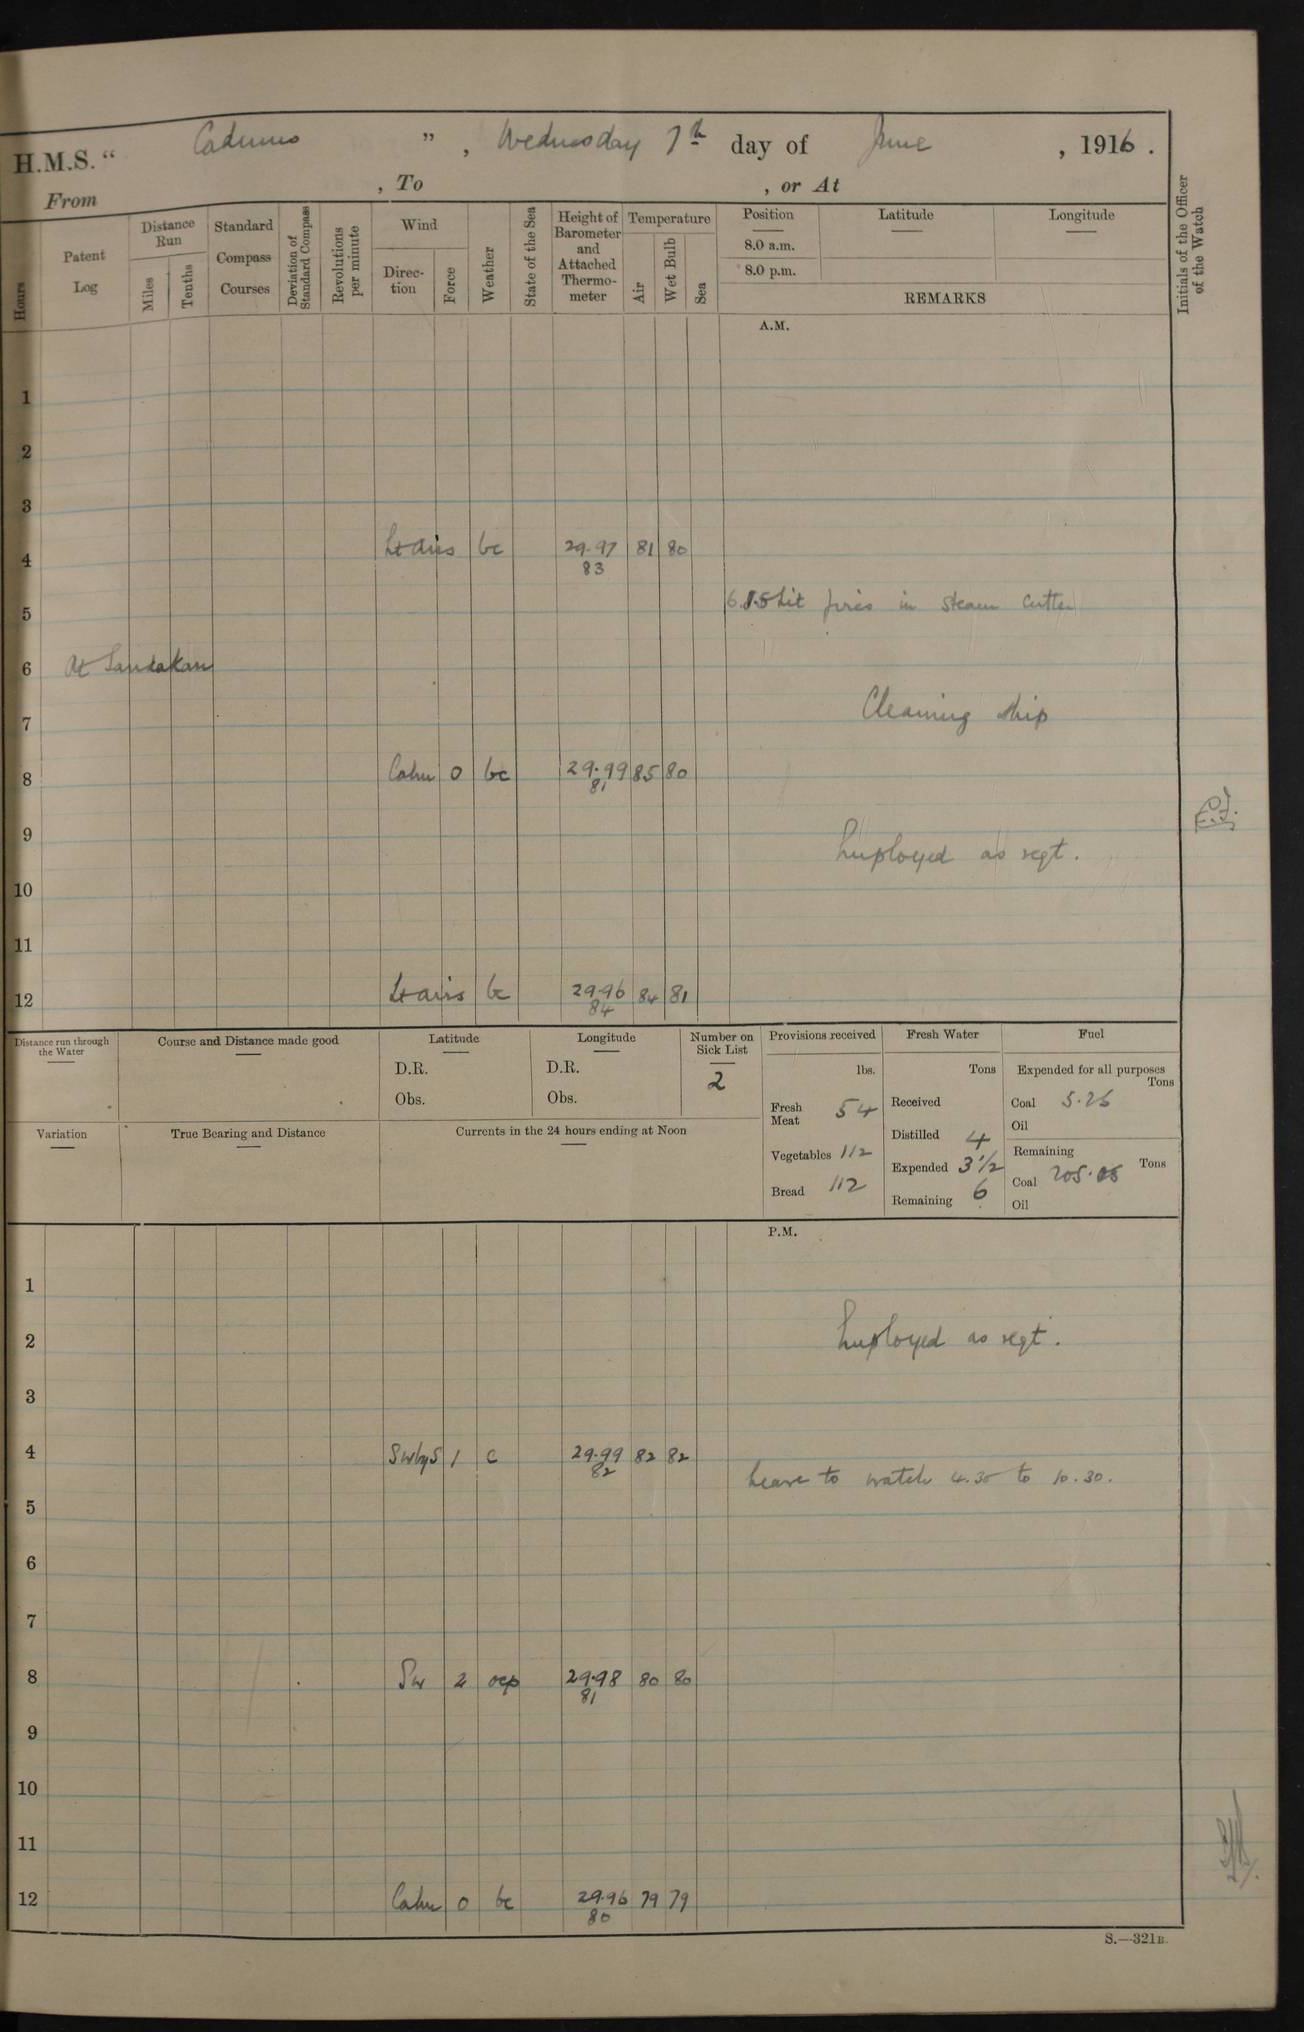 H.M.S. “ Cadmus ” , Wednesday 7th day of June , 1916 .
From , To , or At
Hours
Patent Log
Distance Run
Miles
Tenths
Standard Compass Courses
Deviation of Standard Compass
Revolutions per minute
Wind
Direction
Force
Weather
State of the Sea
Height of Barometer and Attached Thermometer
Temperature
Air
Wet Bulb
Sea
Position
8.0 a.m.
8.0 p.m.
Latitude
Longitude
REMARKS
Initials of the Officer of the Watch
A.M.
1
2
3
4 Lt airs bc 29.97 81 80
83
5 Lit fires in steam cutter
6 At Sandakan
Cleaning ship
7
8 Calm 0 bc 29.99 85 80
81
9 Employed as reqt.
10
11
12 Lt airs bc 29.96 84 81
84
Distance run through the Water
Course and Distance made good
Latitude
D.R.
Obs.
Longitude
D.R.
Obs.
Number on Sick List
2
Provisions received
lbs.
Fresh Meat 54
Vegetables 112
Bread 112
Fresh Water
Tons
Received
Distilled 4
Expended 3 1/2
Remaining 6
Fuel
Expended for all purposes
Tons
Coal 5.26
Oil
Remaining
Tons
Coal 205.06
Oil
Variation
True Bearing and Distance
Currents in the 24 hours ending at Noon
P.M.
1
2 Employed as reqt.
3
4 SWbyS 1 c 29.99 82 82
82
Leave to watch 4.30 to 10.30.
5
6
7
8 SW 2 ocp 29.98 80 80
81
9
10
11
12 Calm 0 bc 29.96 79 79
80
S.—321B.